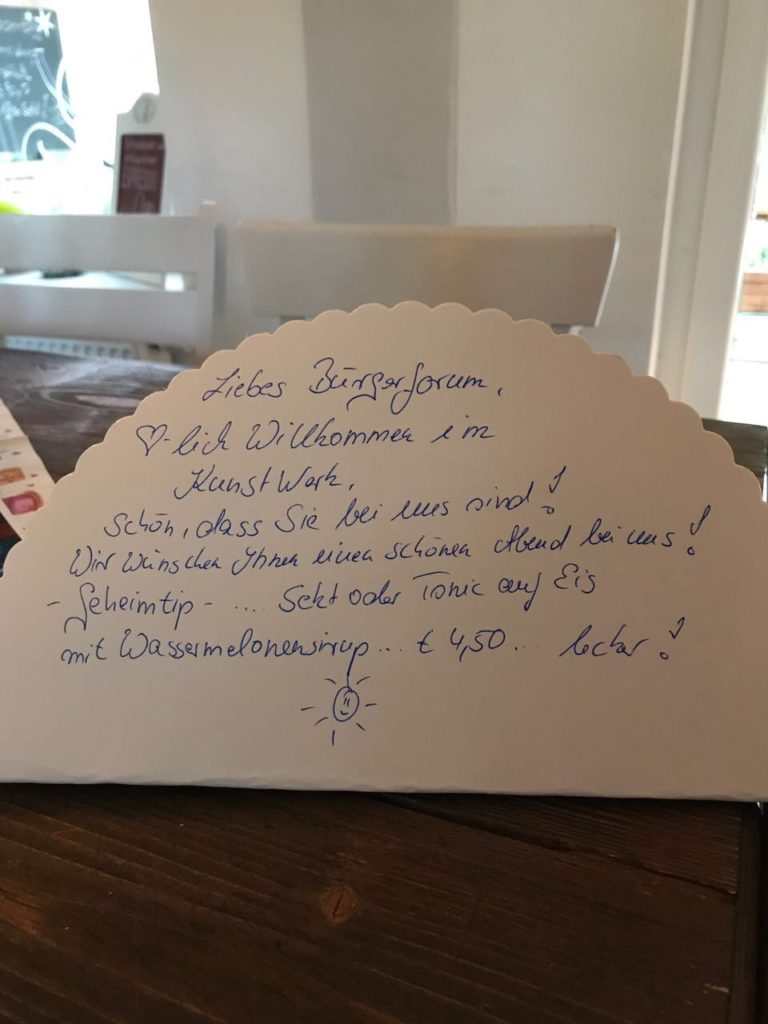 Liebes Bürgerforum,
♡-lich Willkommen im
KunstWerk,
Schön, dass Sie bei uns sind!
Wir wünschen Ihnen einen schönen Abend bei uns!
- Geheimtip - .... Sekt oder Tonic auf Eis
mit Wassermelonensirup... € 4,50... lecker!